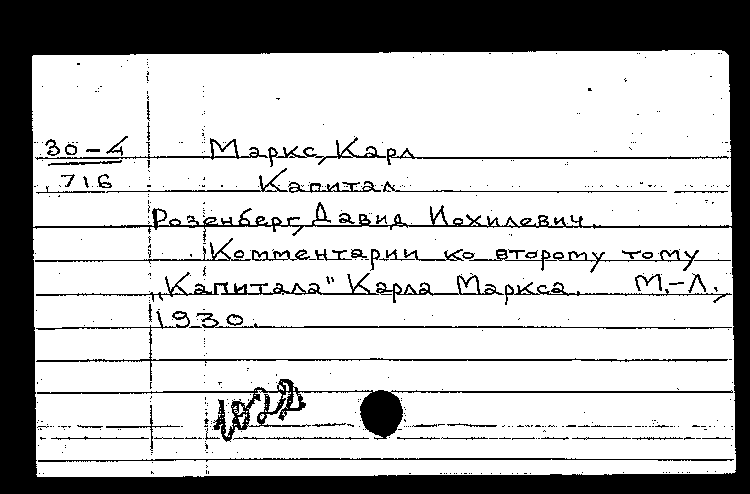 30-4 Маркс, Карл
716 Капитал
Розенберг, Давид Иохилевич.
Комментарии ко второму тому
„Капитала" Карла Маркса. М.-Л.,
1930.